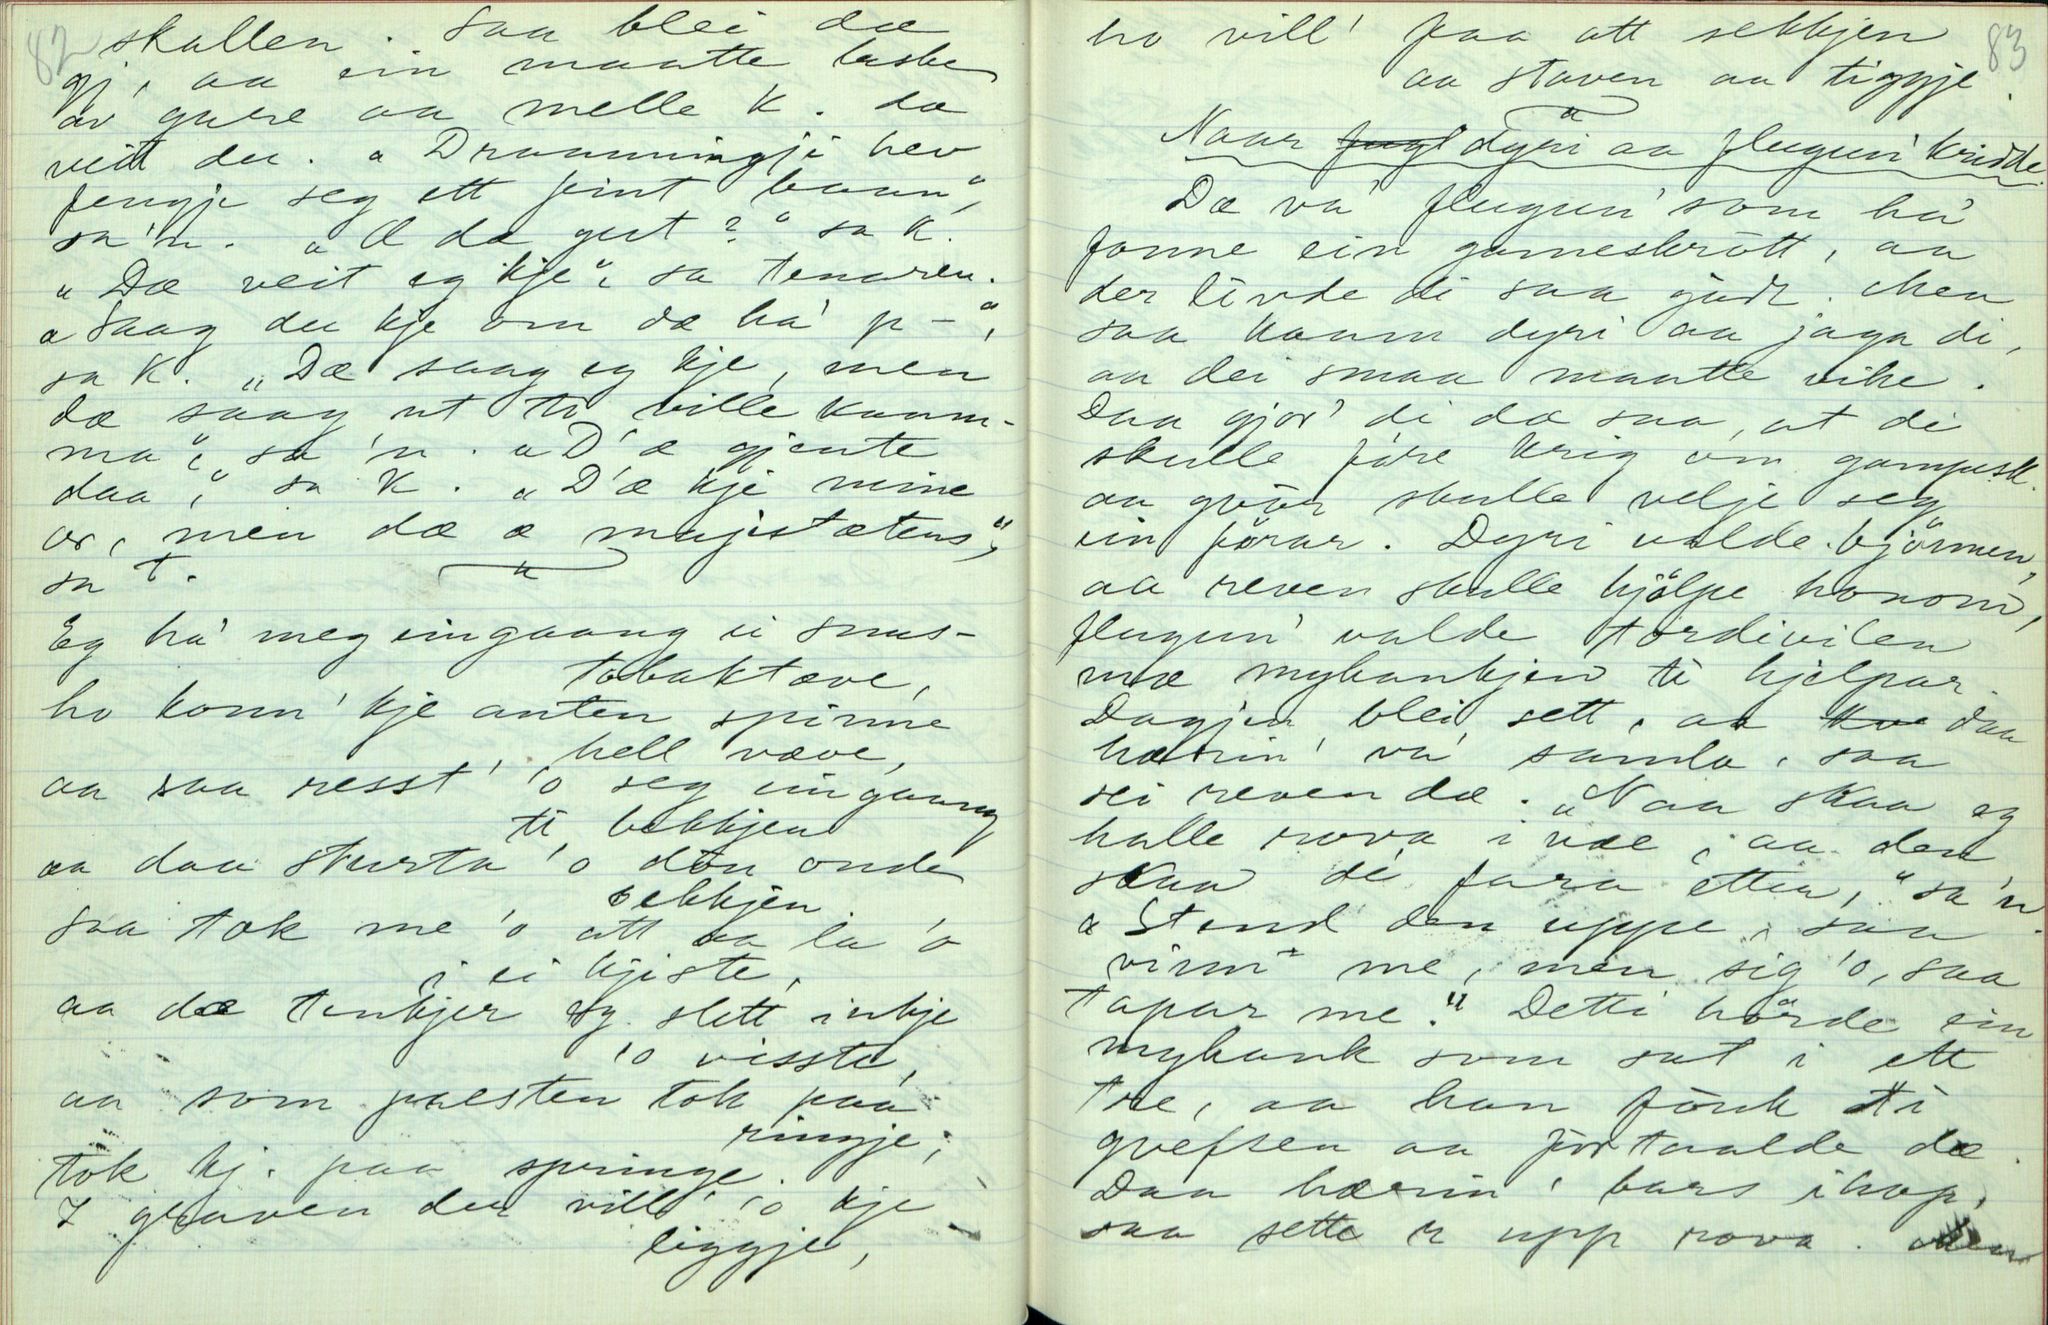 82
skallen. Saa blei dæ
gj, aa ein maatte laske
av gure aa melle K. dæ
veit du. "Dronningji hev
fengje seg ett fint baan",
sa 'n. "Æ dæ gut?" sa K.
"Dæ veit eg kje", sa tenaren.
"Saag du kje om dæ ha' p-",
sa K. "Dæ saag eg kje, men
dæ saag ut te ville kaam-
ma", sa 'n. "D'æ gjente
daa", sa K. "D'æ kje mine
or, men dæ æ majestætens",
sa T.
Eg ha' meg eingaang ei snus-
tobaktæve,
ho konn' kje anten spinne
hell væve,
aa saa resst' 'o seg eingaang
ti bekkjen
aa daa sturta 'o don onde
sekkjen
Saa tok me 'o att aa la 'o
i ei kjiste,
aa dæ tenkjer eg slett inkje
'o visste,
aa som presten tok paa
ringje,
tok kj. paa springe.
I graven der vill' 'o kje
liggje,
83
ho vill' paa att sekkjen
aa staven aa tiggje.
Naar dyri aa flugun' kridde.
Dæ va' flugun' som ha'
fonne ein gameskrott, aa
der livde di saa godt. Men
saa kaam dyri aa jaga di,
aa dei smaa maatte vike.
Daa gjor' di dæ saa, at di
skulle före krig om gampesk.
aa gvör skulle velje seg
ein förar. Dyri valde björnen,
aa reven skulle hjölpe honom,
flugun' valde tordivilen
mæ myhankjen ti hjelpar.
Dagjen blei sett, aa daa
hærin' va' samla, saa
sei reven dæ. "Naa skaa eg
halle rova i væ, aa den
skaa di fara etter," sa 'n.
"Stend den uppe, saa
vinn me, men sig 'o, saa
tapar me." Detti hörde ein
myhank som sat i ett
tre, aa han fönk ti
gvefsen aa fortaalde dæ.
Daa hærin' bars ihop,
saa sette r upp rova. Men